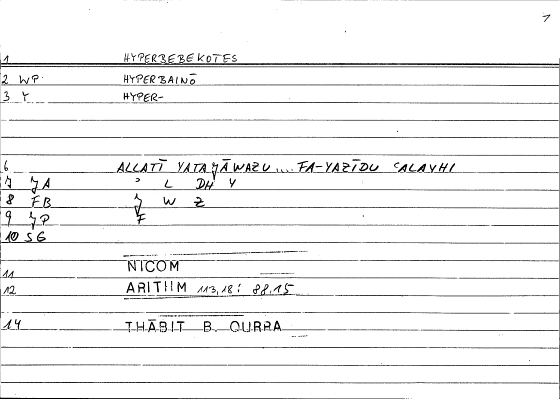 1
1 HYPERBEBEKOTES
2 WP HYPERBAINŌ
3 Y HYPER-
6 ALLATĪ YATAǦĀWAZU... FA-YAZĪDU ʿALAYHI
7 ǦA ʾ L DH Y
8 FB Ǧ W Z
9 ǦP F
10 SG
11 NICOM
12 ARITIIM 113,18: 88.15
14 THĀBIT B. QURRA